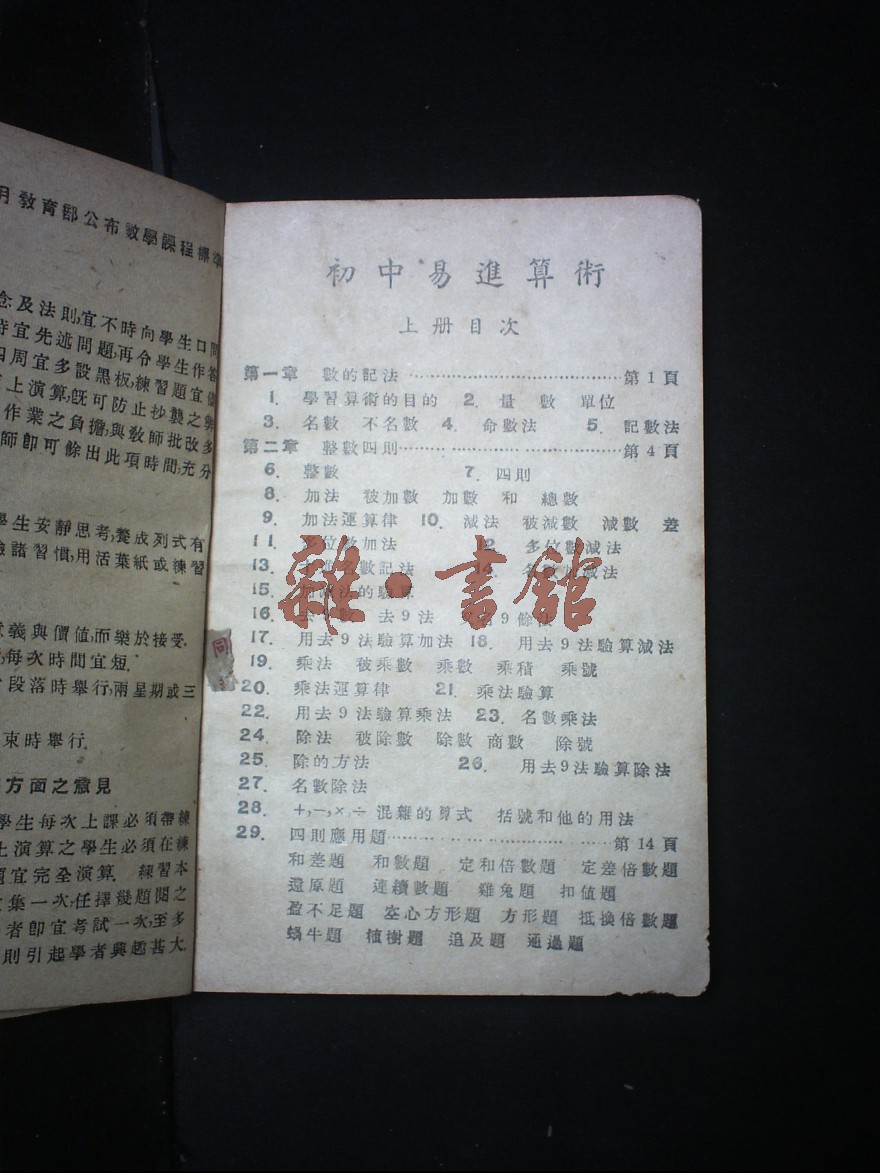 月教育部公布數學課程標準
念及法則,宜不時向學生口問
時宜先述問題,再令學生作答
四周宜多設黑板,練習題宜
上演算,旣可防止抄襲之
作業之負擔,與敎師批改多
師卽可餘出此項時間,充分
學生安靜思考,養成列式有
驗諸習慣,用活葉紙或練習
意義與價值,而樂於接受.
每次時間宜短.
段落時舉行,兩星期或三
束時舉行.
方面之意見
學生每次上課必須帶練
上演算之學生必須在練
題宜完全演算. 練習本
集一次,任擇幾題閱之
者卽宜考試一次,至多
則引起學者興趣甚大.
初中易進算術
上册目次
第一章 數的記法……………………………第1頁
1. 學習算術的目的 2. 量 數 單位
3. 名數 不名數 4. 命數法 5. 記數法
第二章 整數四則……………………………第4頁
6. 整數 7. 四則
8. 加法 被加數 加數 和 總數
9. 加法運算律 10. 減法 被減數 減數 差
11. 多位數加法 12. 多位數減法
13. 名數記法 14. 名數減法
15. 加減法的驗算
16. 去9法 9餘
17. 用去9法驗算加法 18. 用去9法驗算減法
19. 乘法 被乘數 乘數 乘積 乘號
20. 乘法運算律 21. 乘法驗算
22. 用去9法驗算乘法 23. 名數乘法
24. 除法 被除數 除數 商數 除號
25. 除的方法 26. 用去9法驗算除法
27. 名數除法
28. +,−,×,÷混雜的算式 括號和他的用法
29. 四則應用題……………………………第14頁
和差題 和數題 定和倍數題 定差倍數題
還原題 連續數題 雞兔題 扣值題
盈不足題 空心方形題 方形題 抵換倍數題
蝸牛題 植樹題 追及題 通過題
同
雜·書館